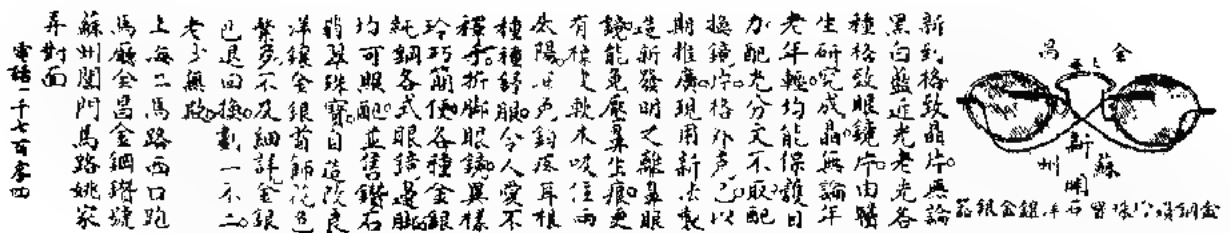 金昌
蘇州
新開
金鋼鑽珍珠寶石洋鑲金銀器
新到格致晶片。無論
黑白藍近光老光各
種格致眼鏡片。由醫
生研究成晶。無論年
老年輕均能保護目
力。配光分文不取。配
換鏡片。格外克己。以
期推廣。現用新法製
造新發明之離鼻眼
鏡。能免壓鼻生痕。更
有橡皮軟木吸住兩
太陽。并免鈎痛耳根
種種舒服。令人愛不
釋手。折脚眼鏡。異樣
玲巧簡便。各種金銀
純鋼各式眼鏡邊脚
均可照配。並售鑽石
翡翠珠寶。自造改良
洋鑲金銀首飾。花色
繁多。不及細詳。金銀
已退回換。劃一不二
老少無欺。
上海二馬路西口跑
馬廳金昌金鋼鑽號
蘇州閶門馬路姚家
弄對面
電話一千七百零四